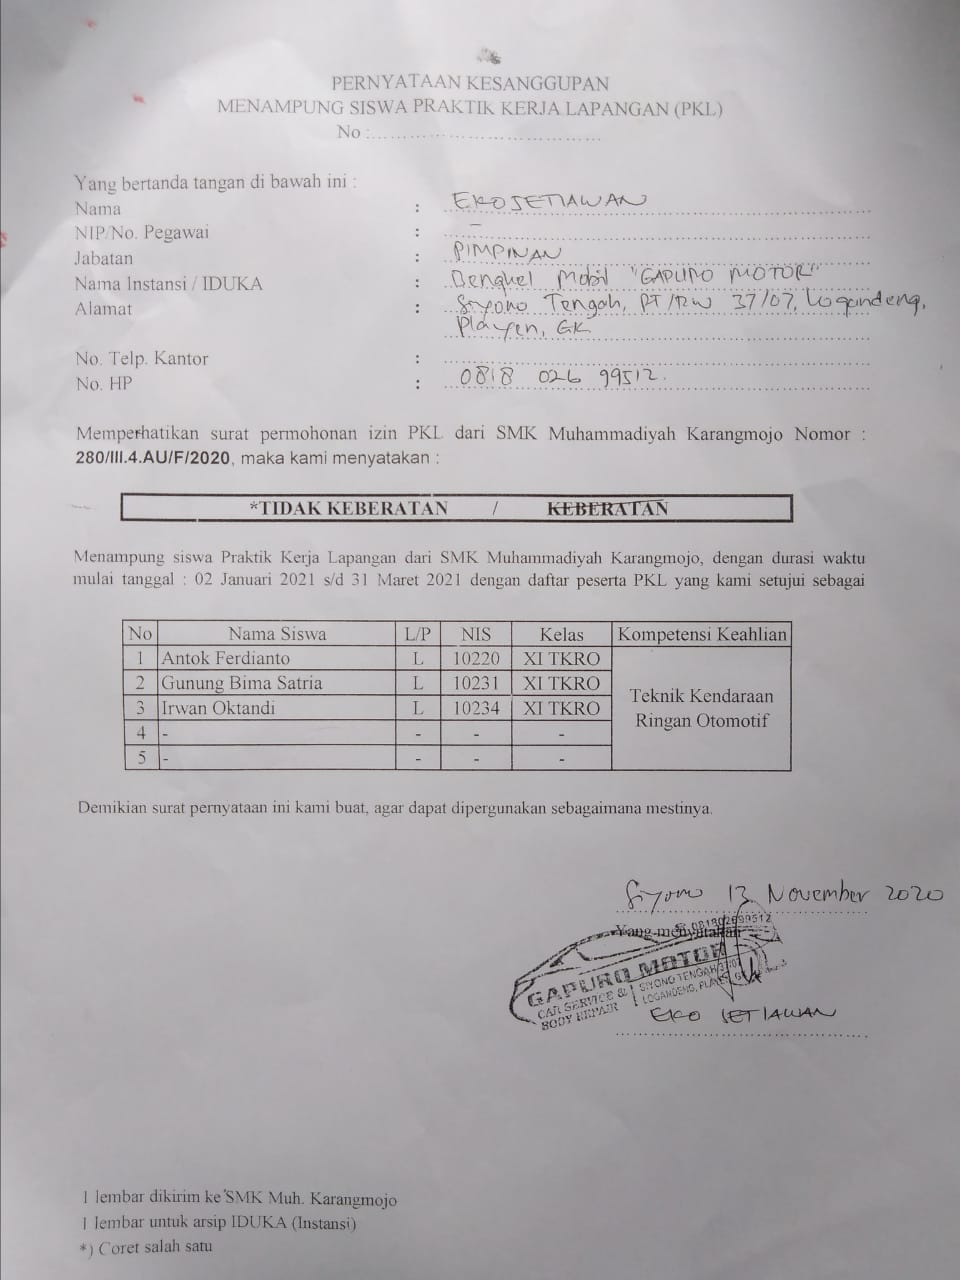 PERNYATAAN KESANGGUPAN
MENAMPUNG SISWA PRAKTIK KERJA LAPANGAN (PKL)
No :......................................
Yang bertanda tangan di bawah ini :
Nama : EKO SETIAWAN
NIP/No. Pegawai : -
Jabatan : PIMPINAN
Nama Instansi / IDUKA : Bengkel Mobil "GAPURO MOTOR"
Alamat : Siyono Tengah, RT/RW 37/07, Logandeng,
Playen, GK
No. Telp. Kantor :
No. HP : 0818 026 99512.
Memperhatikan surat permohonan izin PKL dari SMK Muhammadiyah Karangmojo Nomor :
280/III.4.AU/F/2020, maka kami menyatakan :
*TIDAK KEBERATAN / KEBERATAN
Menampung siswa Praktik Kerja Lapangan dari SMK Muhammadiyah Karangmojo, dengan durasi waktu
mulai tanggal : 02 Januari 2021 s/d 31 Maret 2021 dengan daftar peserta PKL yang kami setujui sebagai
No Nama Siswa L/P NIS Kelas Kompetensi Keahlian
1 Antok Ferdianto L 10220 XI TKRO
2 Gunung Bima Satria L 10231 XI TKRO
Teknik Kendaraan
3 Irwan Oktandi L 10234 XI TKRO
Ringan Otomotif
4 - - - -
5 - - - -
Demikian surat pernyataan ini kami buat, agar dapat dipergunakan sebagaimana mestinya.
Siyono 13 November 2020
Yang menyatakan
081802699512
GAPURO MOTOR
CAR SERVICE & BODY REPAIR
SIYONO TENGAH 37/07
LOGANDENG, PLAYEN, G
EKO SETIAWAN
1 lembar dikirim ke SMK Muh. Karangmojo
1 lembar untuk arsip IDUKA (Instansi)
*) Coret salah satu